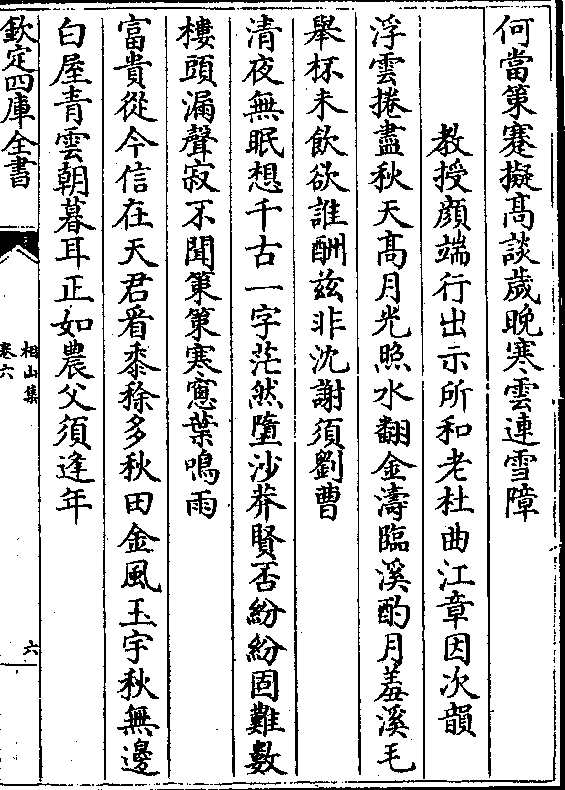 何當策蹇擬髙談歲晚寒雲連雪障
教授顔端行出示所和老杜曲江章因次韻
浮雲捲盡秋天髙月光照水翻金濤臨溪酌月羞溪毛
舉杯未飲欲誰酬兹非沈謝須劉曹
清夜無眠想千古一字茫然墮沙莽賢否紛紛固難數
樓頭漏聲寂不聞策策寒窻葉鳴雨
富貴從今信在天君看黍稌多秋田金風玉宇秋無邊
白屋青雲朝暮耳正如農父須逢年
欽定四庫全書
相山集
卷六
六